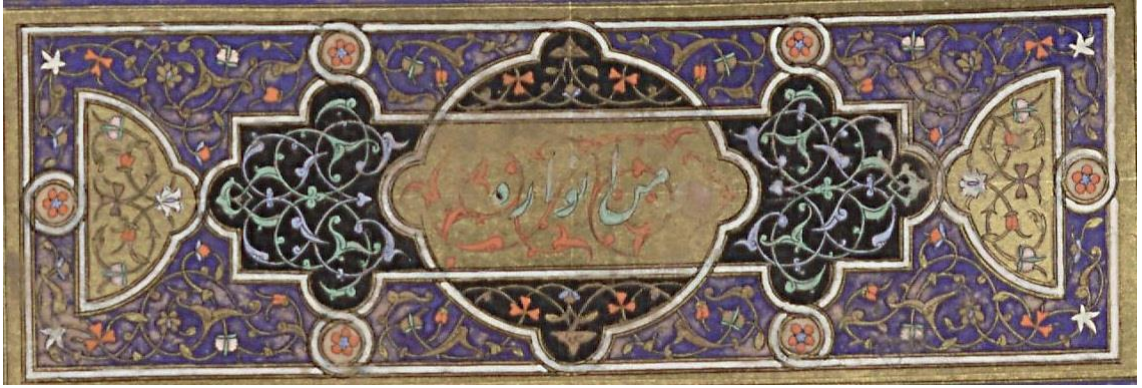 من انواره